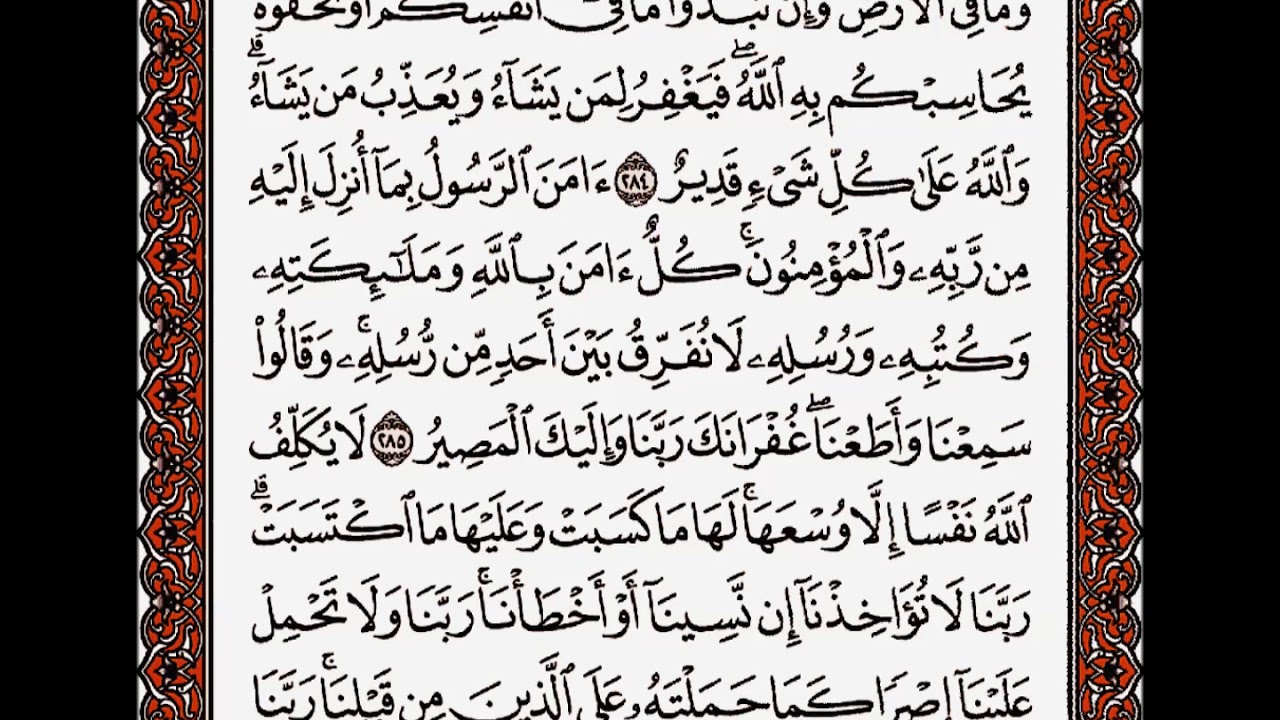 وَمَا فِي ٱلۡأَرۡضِۗ وَإِن تُبۡدُواْ مَا فِيٓ أَنفُسِكُمۡ أَوۡ تُخۡفُوهُ
يُحَاسِبۡكُم بِهِ ٱللَّهُۖ فَيَغۡفِرُ لِمَن يَشَآءُ وَيُعَذِّبُ مَن يَشَآءُۗ
وَٱللَّهُ عَلَىٰ كُلِّ شَيۡءٖ قَدِيرٌ ٢٨٤ ءَامَنَ ٱلرَّسُولُ بِمَآ أُنزِلَ إِلَيۡهِ
مِن رَّبِّهِۦ وَٱلۡمُؤۡمِنُونَۚ كُلٌّ ءَامَنَ بِٱللَّهِ وَمَلَٰٓئِكَتِهِۦ
وَكُتُبِهِۦ وَرُسُلِهِۦ لَا نُفَرِّقُ بَيۡنَ أَحَدٖ مِّن رُّسُلِهِۦۚ وَقَالُواْ
سَمِعۡنَا وَأَطَعۡنَاۖ غُفۡرَانَكَ رَبَّنَا وَإِلَيۡكَ ٱلۡمَصِيرُ ٢٨٥ لَا يُكَلِّفُ
ٱللَّهُ نَفۡسًا إِلَّا وُسۡعَهَاۚ لَهَا مَا كَسَبَتۡ وَعَلَيۡهَا مَا ٱكۡتَسَبَتۡۗ
رَبَّنَا لَا تُؤَاخِذۡنَآ إِن نَّسِينَآ أَوۡ أَخۡطَأۡنَاۚ رَبَّنَا وَلَا تَحۡمِلۡ
عَلَيۡنَآ إِصۡرٗا كَمَا حَمَلۡتَهُۥ عَلَى ٱلَّذِينَ مِن قَبۡلِنَاۚ رَبَّنَا